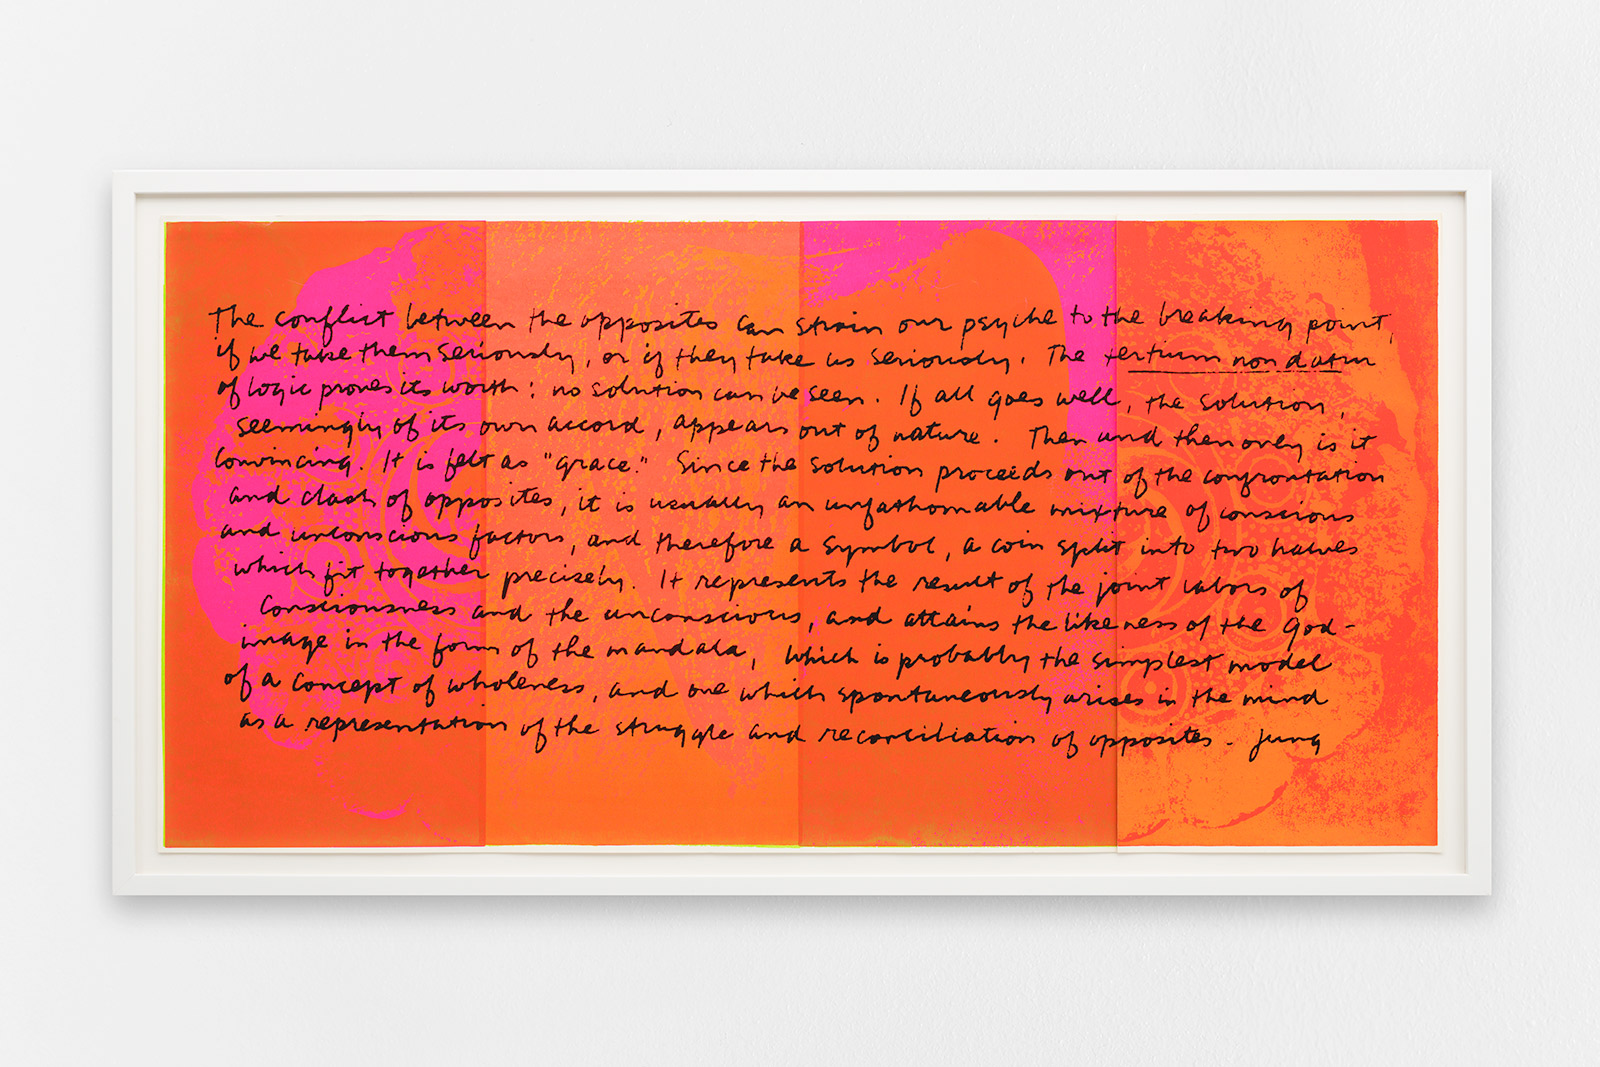 The conflict between the opposites can strain our psyche to the breaking point,
if we take them seriously, or if they take us seriously. The tertium non datur
of logic proves its worth: no solution can be seen. If all goes well, the solution,
seemingly of its own accord, appears out of nature. Then and then only is it
convincing. It is felt as "grace." Since the solution proceeds out of the confrontation
and clash of opposites, it is usually an unfathomable mixture of conscious
and unconscious factors, and therefore a symbol, a coin split into two halves
which fit together precisely. It represents the result of the joint labors of
consciousness and the unconscious, and attains the likeness of the God-
image in the form of the mandala, which is probably the simplest model
of a concept of wholeness, and one which spontaneously arises in the mind
as a representation of the struggle and reconciliation of opposites. Jung